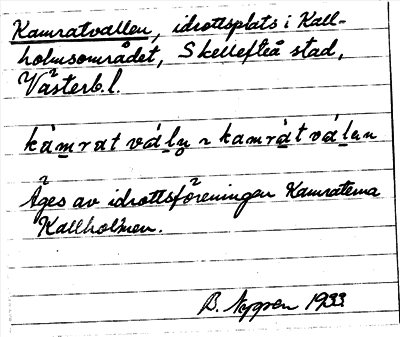 Kamratvallen, idrottsplats i Kall-
holmsområdet, Skellefteå stad,
Västerb. l.
kàmrat váḷn̥ ~ kamràt váḷen
Äges av idrottsföreningen Kamraterna
Kallholmen.
B. Nygren 1933.